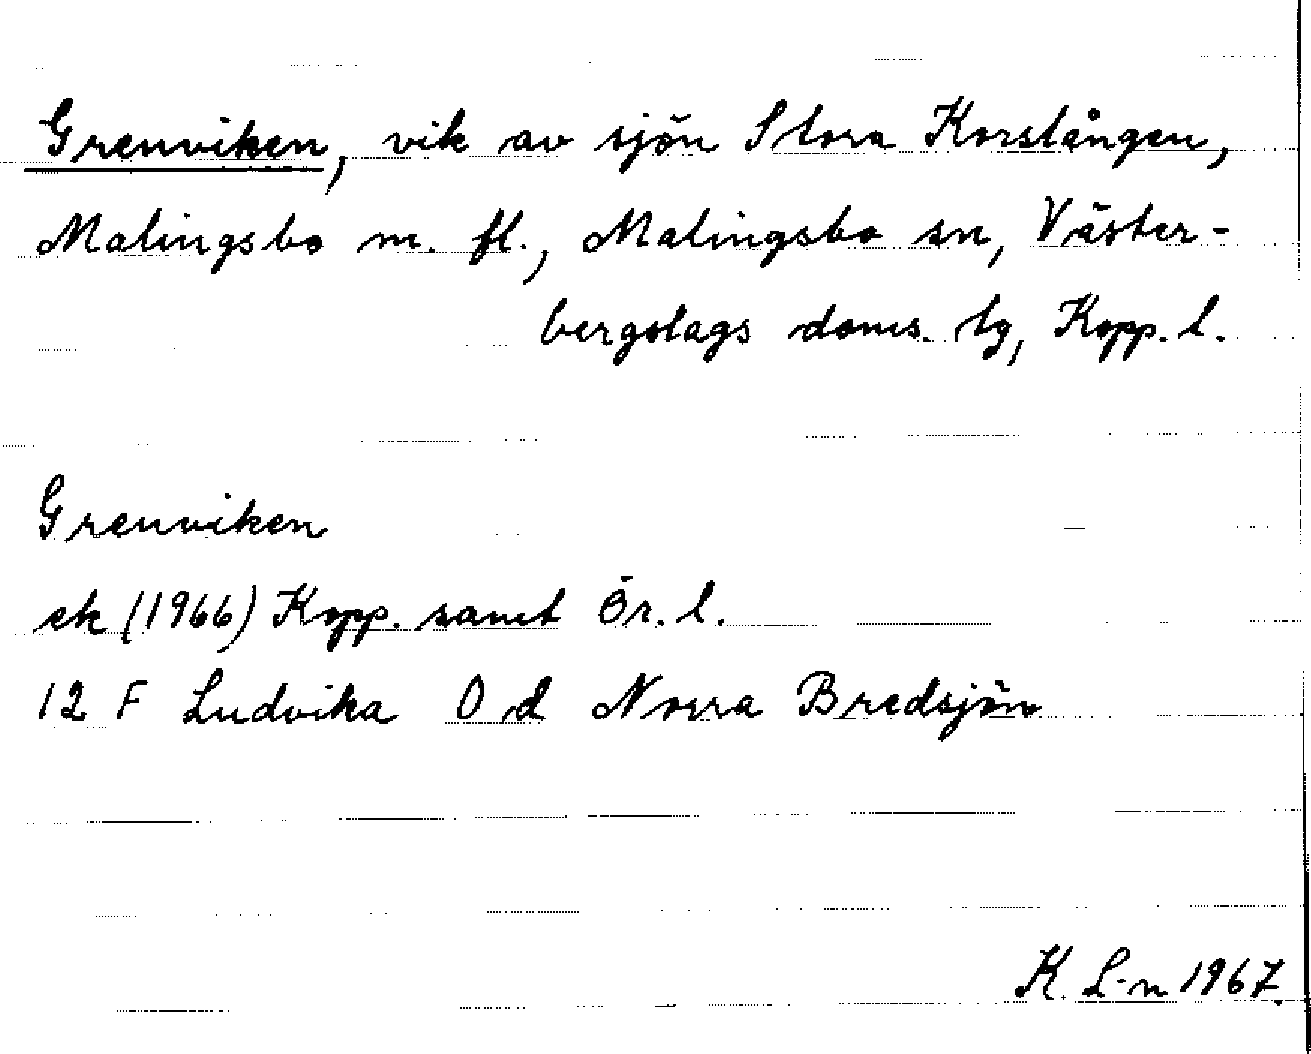 Grenviken, vik av sjön Stora Korslången,
Malingsbo m. fl., Malingsbo sn, Väster-
bergslags doms. tg, Kopp. l.
Grenviken
ek (1966) Kopp. samt Ör. l.
12 F Ludvika 0 d Norra Bredsjön
K. L-n 1967.